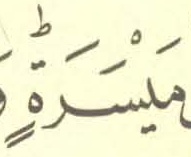 مَيْسَرَةٍؕ